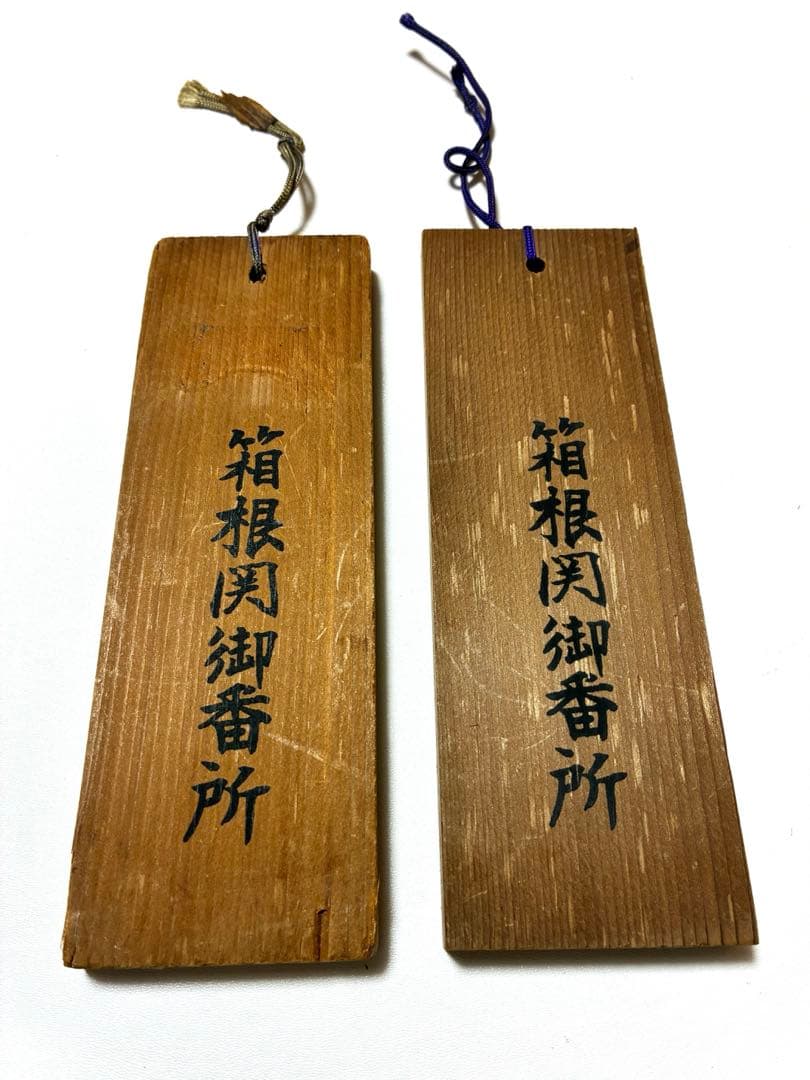 箱根関御番所
箱根関御番所